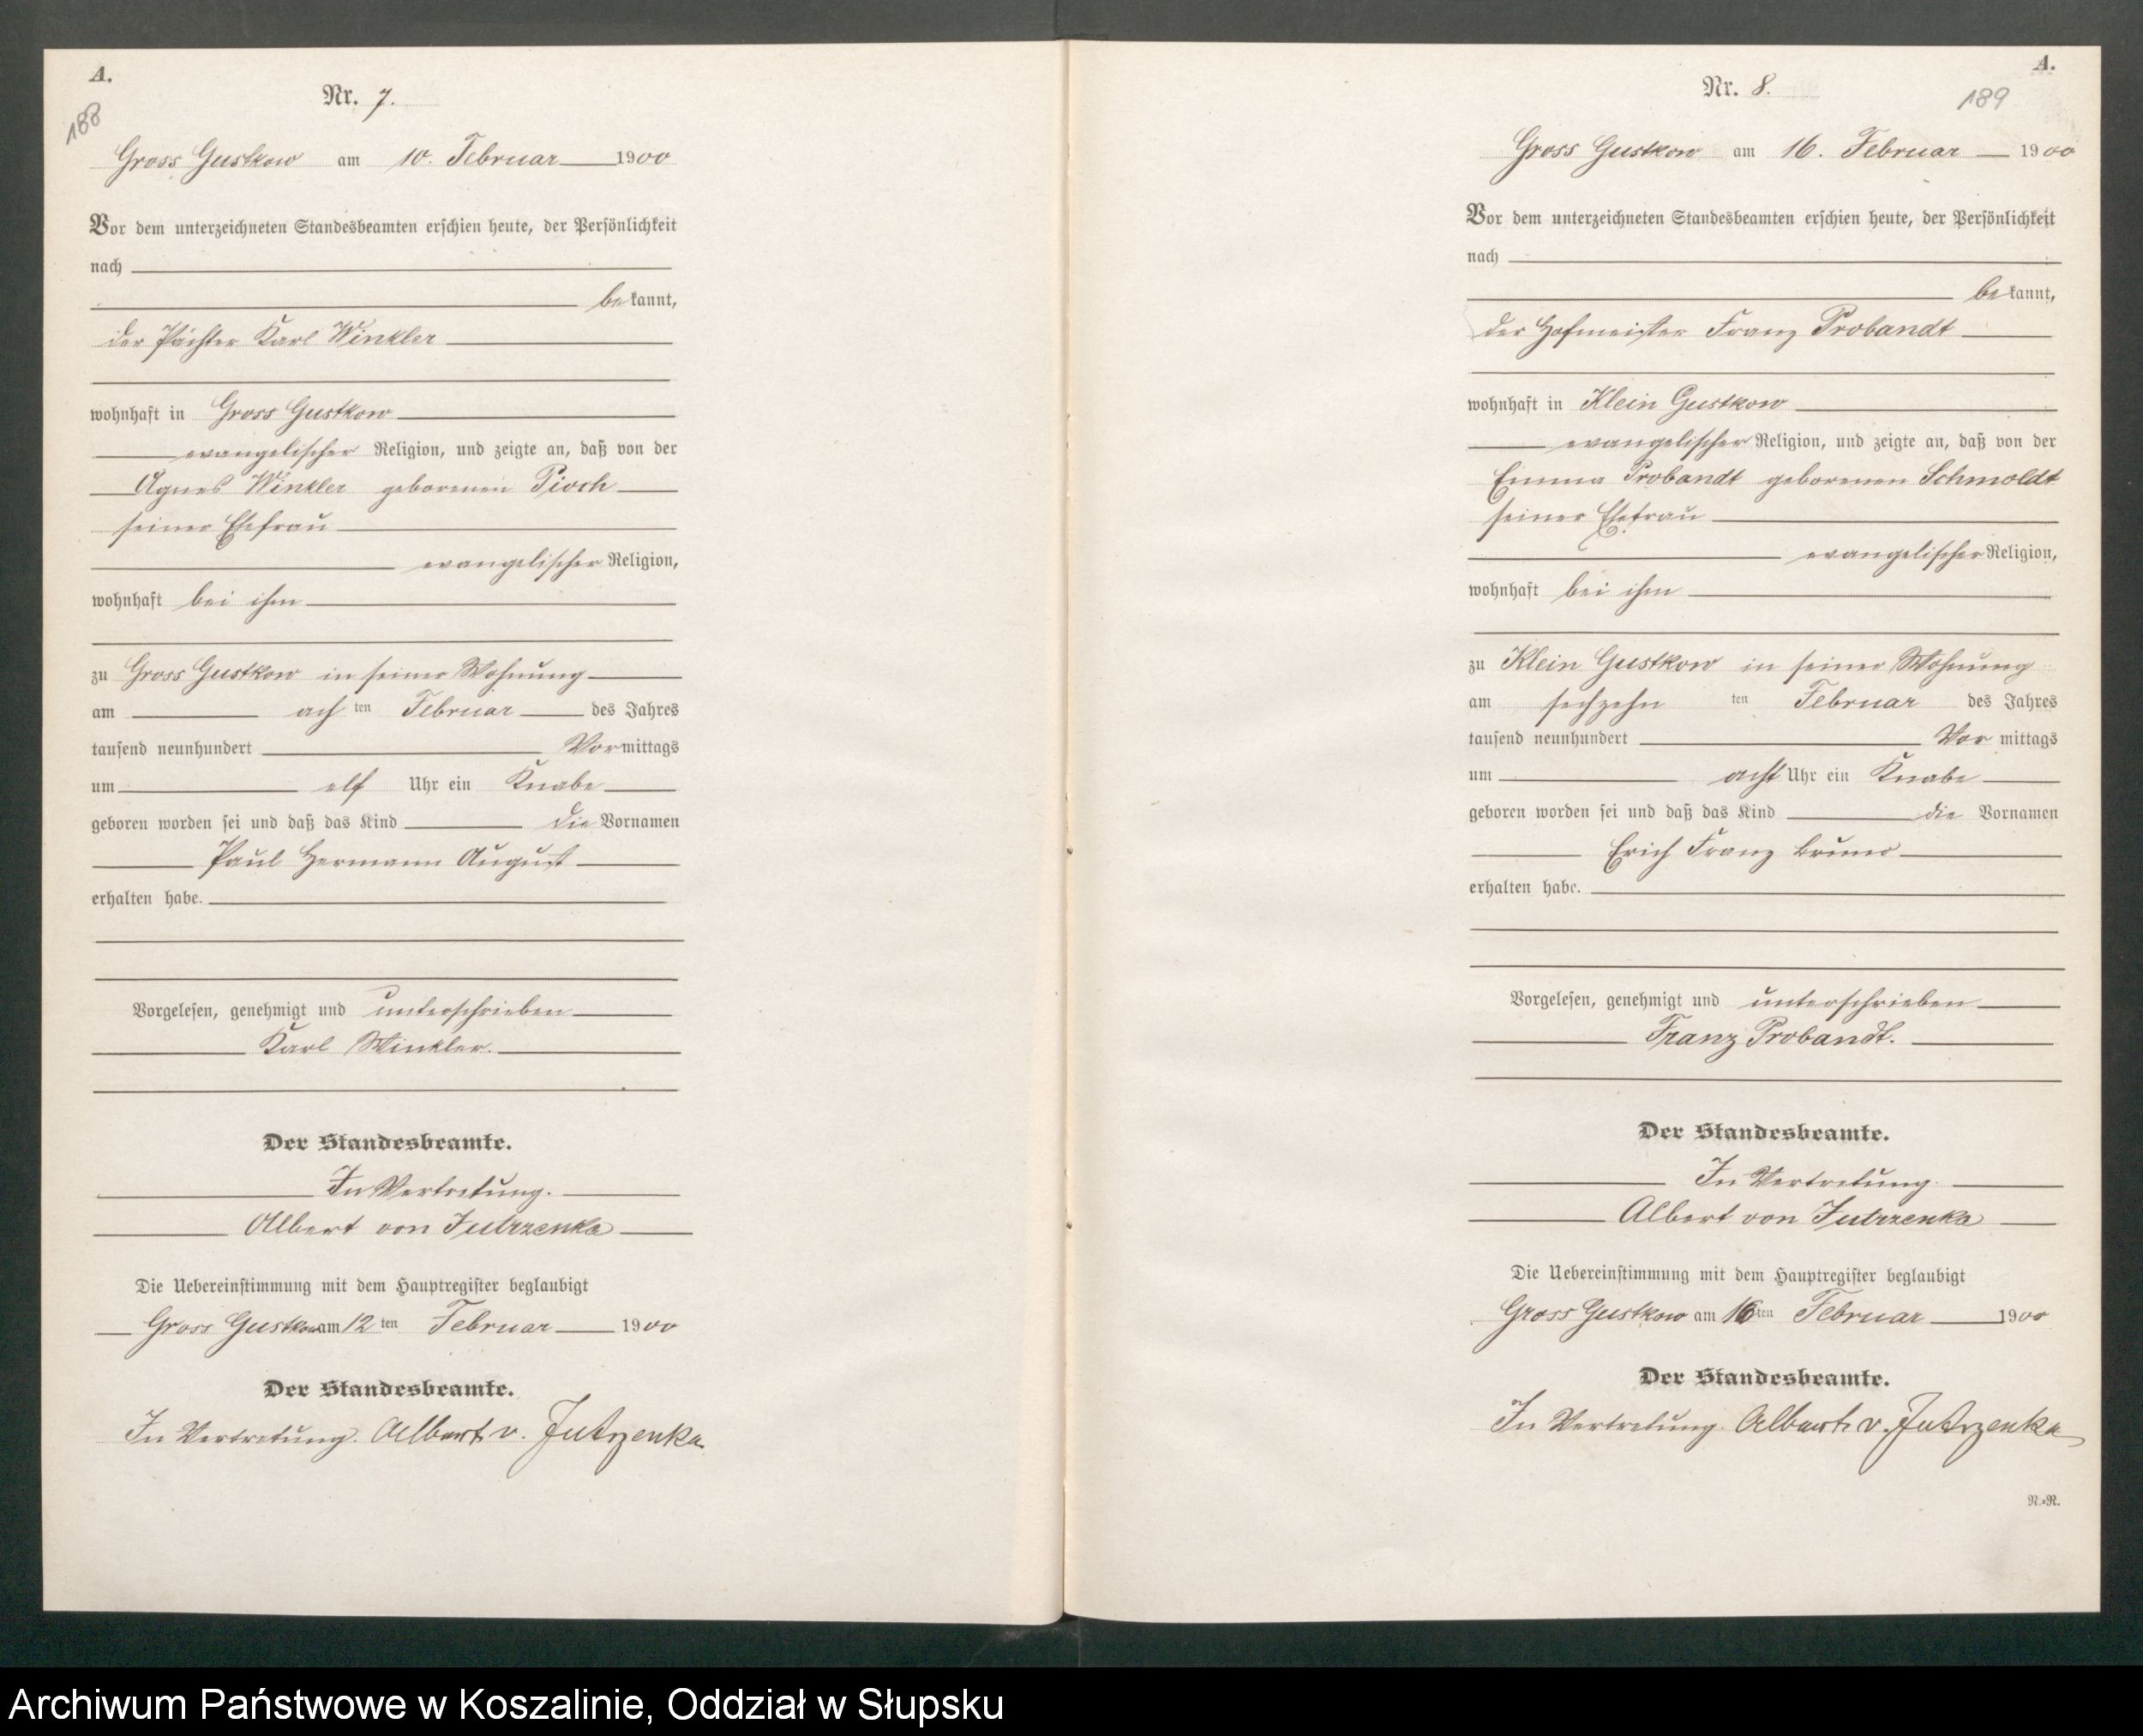 A.
188
Nr. 7.
Gross Gustkow am 10. Februar 1900
Vor dem unterzeichneten Standesbeamten erschien heute, der Persönlichkeit
nach
bekannt,
der Pächter Karl Winkler
wohnhaft in Gross Gustkow
evangelischer Religion, und zeigte an, daß von der
Agnes Winkler geborenen Pioch
seiner Ehefrau
evangelischer Religion,
wohnhaft bei ihm
zu Gross Gustkow in seiner Wohnung
am achten Februar des Jahres
tausend neunhundert Vormittags
um elf Uhr ein Knabe
geboren worden sei und daß das Kind die Vornamen
Paul Hermann August
erhalten habe.
Vorgelesen, genehmigt und unterschrieben
Karl Winkler.
Der Standesbeamte.
In Vertretung.
Albert von Jutrzenka
Die Uebereinstimmung mit dem Hauptregister beglaubigt
Gross Gustkow am 12ten Februar 1900
Der Standesbeamte.
In Vertretung. Albert v. Jutrzenka.
A.
189
Nr. 8.
Gross Gustkow am 16. Februar 1900
Vor dem unterzeichneten Standesbeamten erschien heute, der Persönlichkeit
nach
bekannt,
der Hofmeister Franz Probandt
wohnhaft in Klein Gustkow
evangelischer Religion, und zeigte an, daß von der
Emma Probandt geborenen Schmoldt
seiner Ehefrau
evangelischer Religion,
wohnhaft bei ihm
zu Klein Gustkow in seiner Wohnung
am sechzehn ten Februar des Jahres
tausend neunhundert Vor mittags
um acht Uhr ein Knabe
geboren worden sei und daß das Kind die Vornamen
Erich Franz Bruno
erhalten habe.
Vorgelesen, genehmigt und unterschrieben
Franz Probandt.
Der Standesbeamte.
In Vertretung.
Albert von Jutrzenka
Die Uebereinstimmung mit dem Hauptregister beglaubigt
Gross Gustkow am 16ten Februar 1900
Der Standesbeamte.
In Vertretung. Albert v. Jutrzenka
N.=R.
Archiwum Państwowe w Koszalinie, Oddział w Słupsku